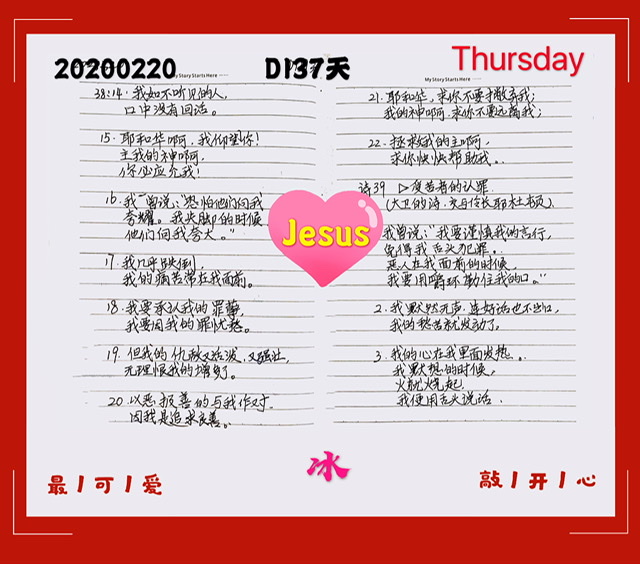 20200220
D137天
Thursday
My Story Starts Here
My Story Starts Here
38:14. 我如不听见的人,
口中没有回话。
15. 耶和华啊,我仰望你!
主我的神啊,
你必应允我!
16. 我曾说:“恐怕他们向我
夸耀。我失脚的时候
他们向我夸大。”
17. 我几乎跌倒,
我的痛苦常在我面前。
18. 我要承认我的罪孽,
我要因我的罪忧愁。
19. 但我的仇敌又活泼、又强壮,
无理恨我的增多了。
20. 以恶报善的与我作对.
因我是追求良善。
21. 耶和华,求你不要撇弃我;
我的神啊,求你不要远离我;
22. 拯救我的主啊,
求你快快帮助我。
诗39 ▷受苦者的认罪.
(大卫的诗,交与伶长耶杜顿)
我曾说:“我要谨慎我的言行,
免得我舌头犯罪。
恶人在我面前的时候,
我要用嚼环勒住我的口。”
2. 我默然无声,连好话也不出口,
我的愁苦就发动了。
3. 我的心在我里面发热。
我默想的时候,
火就烧起
我便用舌头说话.
Jesus
冰
最丨可丨爱
敲丨开丨心